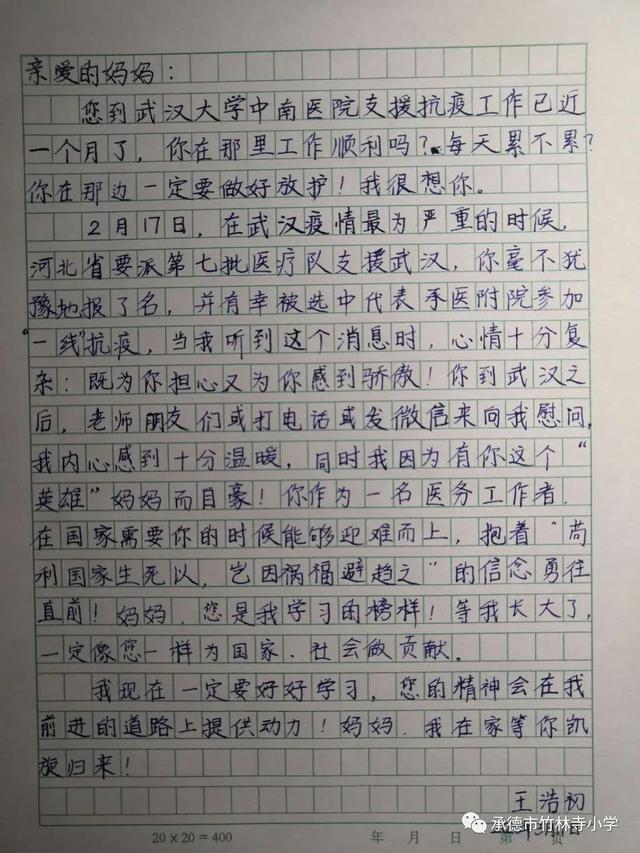 亲爱的妈妈：
您到武汉大学中南医院支援抗疫工作已近
一个月了，你在那里工作顺利吗？每天累不累？
你在那边一定要做好放护！我很想你。
2月17日，在武汉疫情最为严重的时候，
河北省要派第七批医疗队支援武汉，你毫不犹
豫地报了名，并有幸被选中代表承医附院参加
“一线”抗疫，当我听到这个消息时，心情十分复
杂：既为你担心又为你感到骄傲！你到武汉之
后，老师朋友们或打电话或发微信来向我慰问，
我内心感到十分温暖，同时我因为有你这个“
英雄”妈妈而自豪！你作为一名医务工作者，
在国家需要你的时候能够迎难而上，抱着“苟
利国家生死以，岂因祸福避趋之”的信念勇往
直前！妈妈，您是我学习的榜样！等我长大了，
一定像您一样为国家、社会做贡献。
我现在一定要好好学习，您的精神会在我
前进的道路上提供动力！妈妈，我在家等你凯
旋归来！
王浩初
承德市竹林寺小学
20×20=400 年 月 日 第 页